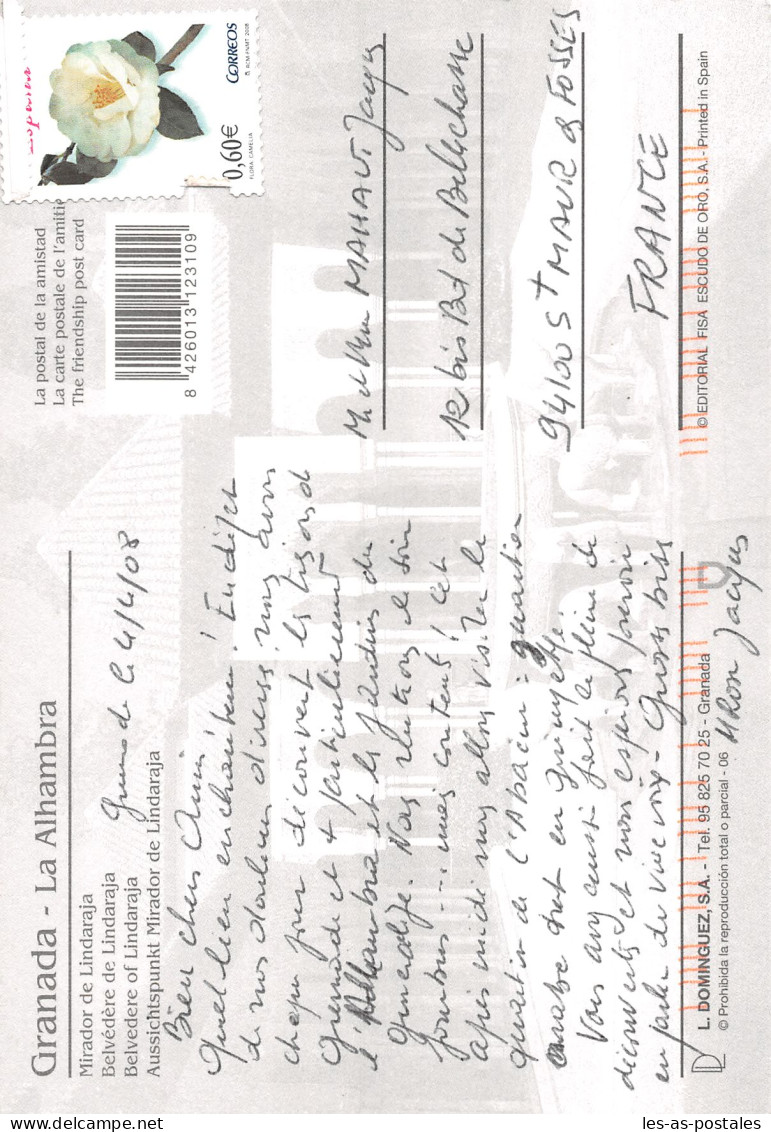 Granada - La Alhambra
Mirador de Lindaraja
Belvédère de Lindaraja
Belvedere of Lindaraja
Aussichtspunkt Mirador de Lindaraja
Grenade le 4/4/08
Bien chers Amis
Quel lieu enchanteur! En dépit
de nos douleurs nous avons
chaque jour découvert les trésors de
Grenade et + particulièrement
l'Alhambra et les jardins du
Generalife. Nous rentrons le soir
fourbus... mais contents! Cet
après midi nous allons visiter le
quartier de l'Albaicin = quartier
arabe tout en guinguette
Vous avez aussi fait le plein de
découvertes et nous espérons pouvoir
en parler de vive voix - Grosses bises
Jacques
L. DOMINGUEZ, S.A. - Tel. 95 825 70 25 - Granada
© Prohibida la reproducción total o parcial - 06
La postal de la amistad
La carte postale de l'amitié
The friendship post card
8 426013 123109
España
CORREOS
® RCM-FNMT 2008
0,60€
FLORA. CAMELIA
M. et Mme MAHAUT Jacques
12 bis Bd de Bellechasse
94100 St MAUR des FOSSES
FRANCE
© EDITORIAL FISA ESCUDO DE ORO, S.A. - Printed in Spain
les-as-postales